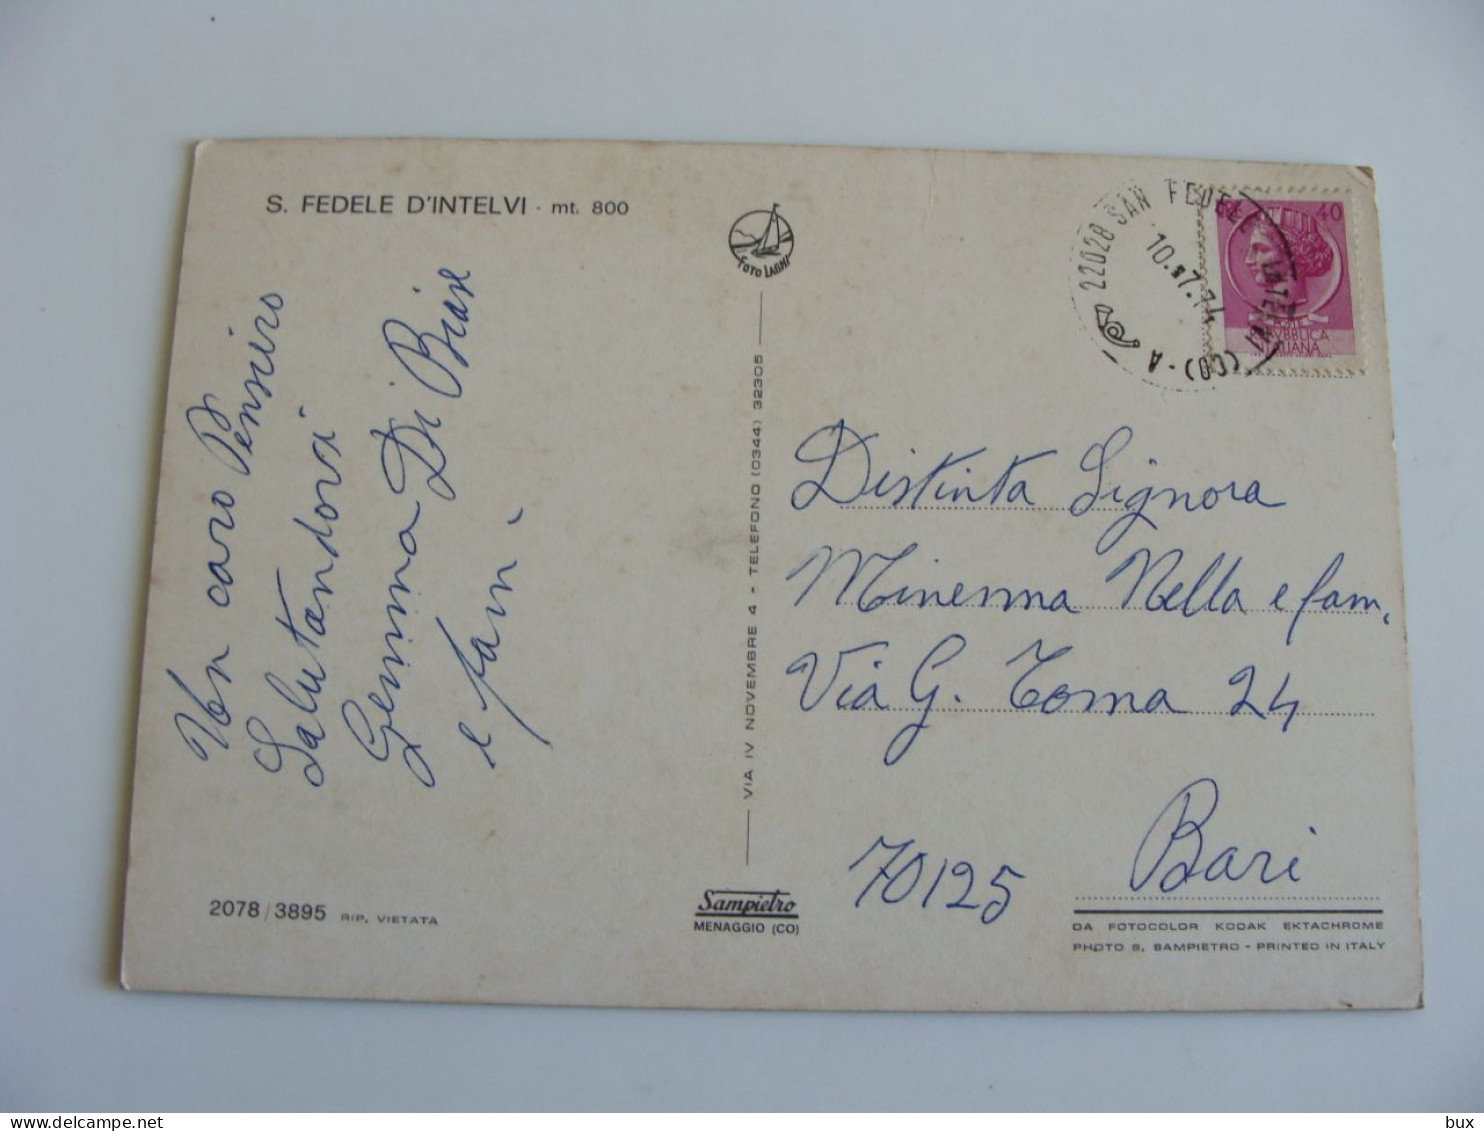 S. FEDELE D'INTELVI - mt. 800
Un caro Pensiero
Salutandovi
Gemma Di Biase
e fam.
2078/3895 RIP. VIETATA
FOTO LAGHI
VIA IV NOVEMBRE 4 - TELEFONO (0344) 32305
Sampietro
MENAGGIO (CO)
22028 SAN FEDELE INTELVI (CO) - A
10.7.74
40
POSTE
REPUBBLICA
ITALIANA
Distinta Signora
Minenna Nella e fam.
Via G. Toma 24
70125 Bari
DA FOTOCOLOR KODAK EKTACHROME
PHOTO S. SAMPIETRO - PRINTED IN ITALY
bux